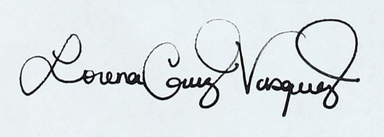 Lorena Cruz Vasquez